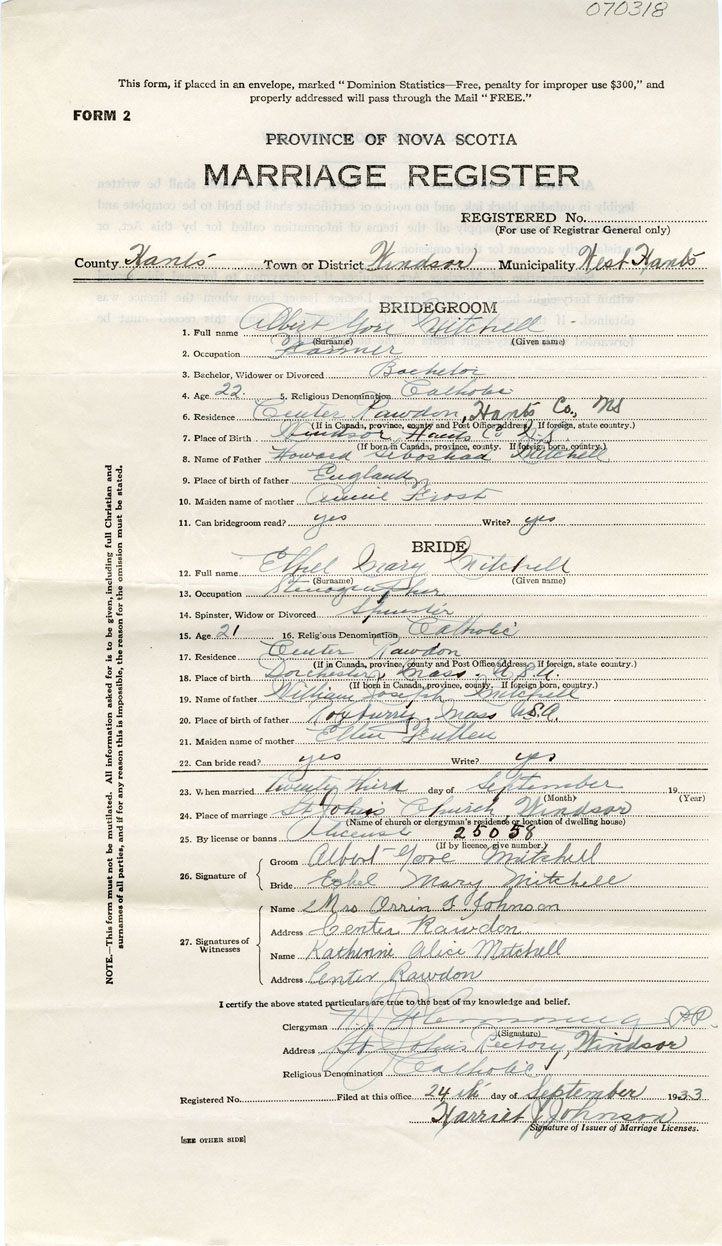 070318
This form, if placed in an envelope, marked "Dominion Statistics—Free, penalty for improper use $300," and
properly addressed will pass through the Mail "FREE."
FORM 2
PROVINCE OF NOVA SCOTIA
MARRIAGE REGISTER
REGISTERED No.
(For use of Registrar General only)
County Hants Town or District Windsor Municipality West Hants
BRIDEGROOM
1. Full name Albert Gove Mitchell
(Surname) (Given name)
2. Occupation Farmer
3. Bachelor, Widower or Divorced Bachelor
4. Age 22 5. Religious Denomination Catholic
6. Residence Center Rawdon, Hants Co., NS
(If in Canada, province, county and Post Office address. If foreign, state country.)
7. Place of Birth Windsor Hants Co N.S.
(If born in Canada, province, county. If foreign born, country.)
8. Name of Father Howard Mitchell
9. Place of birth of father England
10. Maiden name of mother Annie Frost
11. Can bridegroom read? yes Write? yes
BRIDE
12. Full name Ethel Mary Mitchell
(Surname) (Given name)
13. Occupation Stenographer
14. Spinster, Widow or Divorced Spinster
15. Age 21 16. Religious Denomination Catholic
17. Residence Center Rawdon
(If in Canada, province, county and Post Office address. If foreign, state country.)
18. Place of birth Dorchester, Mass. U.S.A.
(If born in Canada, province, county. If foreign born, country.)
19. Name of father William Joseph Mitchell
20. Place of birth of father Roxburry, Mass U.S.A.
21. Maiden name of mother Ellen
22. Can bride read? yes Write? yes
23. When married twenty third day of September 19
(Month) (Year)
24. Place of marriage St John's Church, Windsor
(Name of church or clergyman's residence or location of dwelling house)
25. By license or banns License 25058
(If by licence, give number.)
26. Signature of
Groom Albert Gove Mitchell
Bride Ethel Mary Mitchell
27. Signatures of Witnesses
Name Mrs Orrin F. Johnson
Address Center Rawdon
Name Katherine Alice Mitchell
Address Center Rawdon
I certify the above stated particulars are true to the best of my knowledge and belief.
Clergyman P.P.
(Signature)
Address St John's Rectory, Windsor
Religious Denomination Catholic
Registered No. Filed at this office 24th day of September 1933
Harriet J Johnson
Signature of Issuer of Marriage Licenses.
[SEE OTHER SIDE]
NOTE.—This form must not be mutilated. All information asked for is to be given, including full Christian and
surnames of all parties, and if for any reason this is impossible, the reason for the omission must be stated.